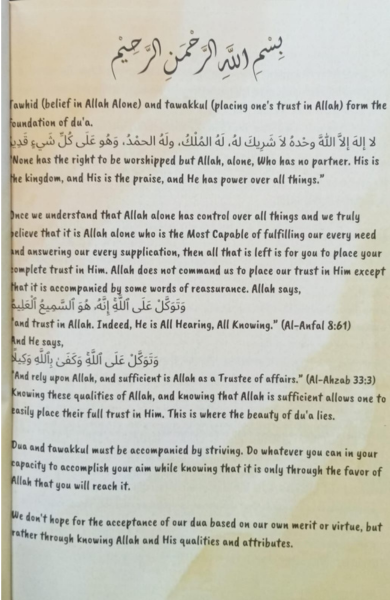 بِسْمِ اللَّهِ الرَّحْمَنِ الرَّحِيْمِ
Tawhid (belief in Allah Alone) and tawakkul (placing one's trust in Allah) form the
foundation of du'a.
لا إله إلاَّ اللَّهُ وحْدهُ لاَ شَرِيكَ لهُ، لَهُ المُلْكُ، ولَهُ الحمْدُ، وَهُو عَلَى كُلِّ شَيءٍ قَدِيرٌ
"None has the right to be worshipped but Allah, alone, Who has no partner. His is
the kingdom, and His is the praise, and He has power over all things."
Once we understand that Allah alone has control over all things and we truly
believe that it is Allah alone who is the Most Capable of fulfilling our every need
and answering our every supplication, then all that is left is for you to place your
complete trust in Him. Allah does not command us to place our trust in Him except
that it is accompanied by some words of reassurance. Allah says,
وَتَوَكَّلْ عَلَى اللَّهِ ۚ إِنَّهُ، هُوَ السَّمِيعُ الْعَلِيمُ
"and trust in Allah. Indeed, He is All Hearing, All Knowing." (Al-Anfal 8:61)
And He says,
وَتَوَكَّلْ عَلَى اللَّهِ ۚ وَكَفَىٰ بِاللَّهِ وَكِيلًا
"And rely upon Allah, and sufficient is Allah as a Trustee of affairs." (Al-Ahzab 33:3)
Knowing these qualities of Allah, and knowing that Allah is sufficient allows one to
easily place their full trust in Him. This is where the beauty of du'a lies.
Dua and tawakkul must be accompanied by striving. Do whatever you can in your
capacity to accomplish your aim while knowing that it is only through the favor of
Allah that you will reach it.
We don't hope for the acceptance of our dua based on our own merit or virtue, but
rather through knowing Allah and His qualities and attributes.